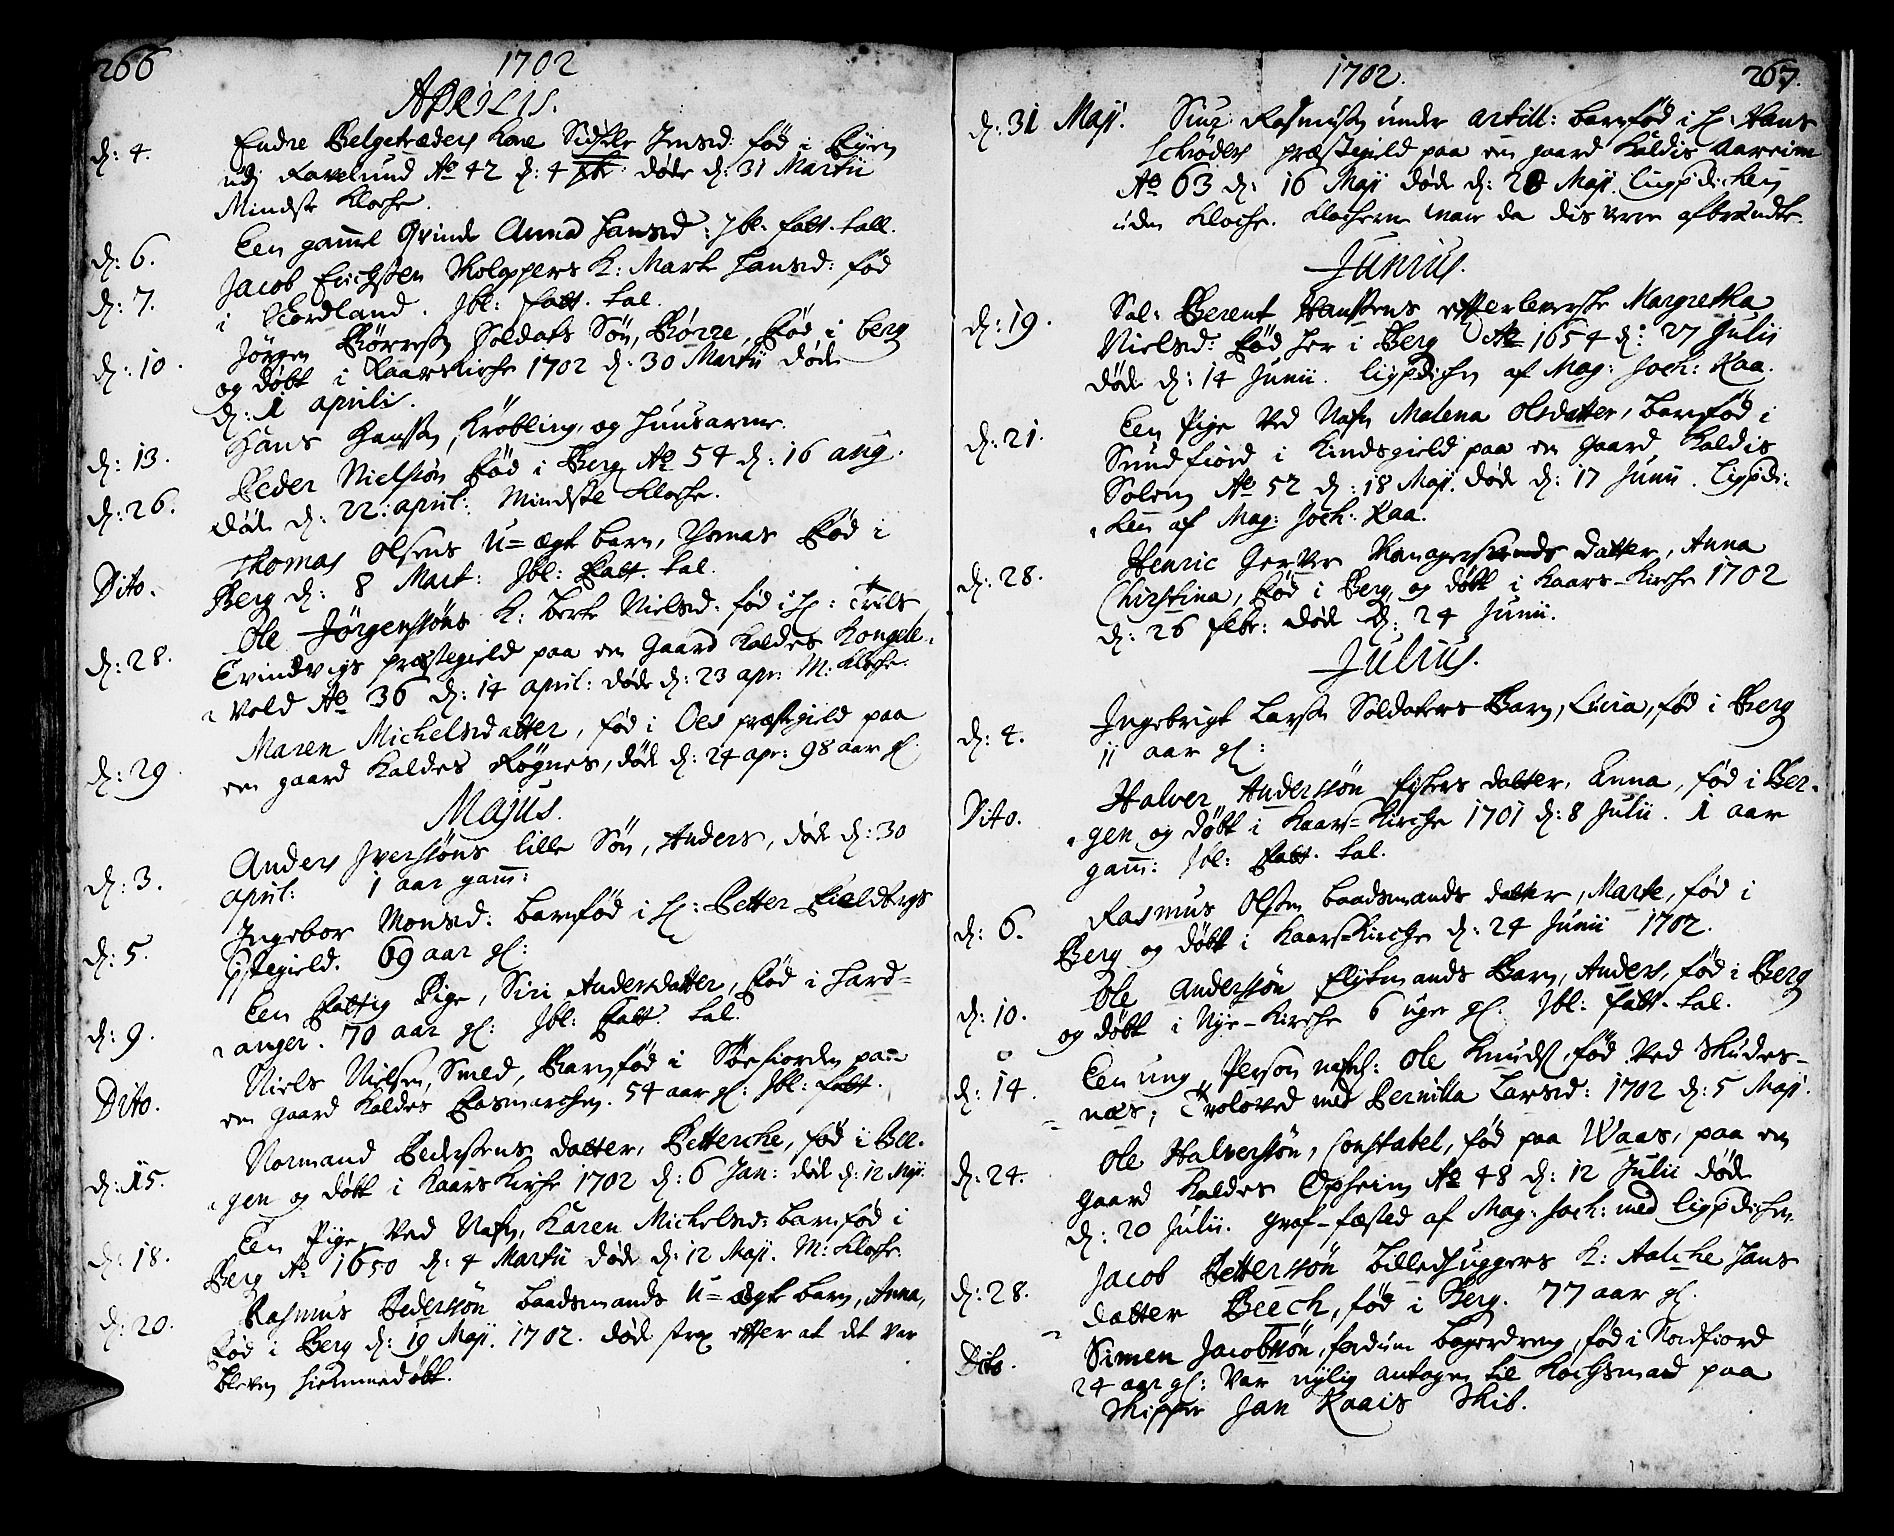 266
1702
APRILIS.
d: 4. Endre Belgetræders Kone Sidsele Jensd: fød i
udj Ravelund Ao 42 d: 4 døde d: 31 Martii
Mindste Kloche.
d: 6. Een gaml Qvinde Anna Hansd: Jbl. fatt. Call.
d: 7. Jacob Erichsen Skolappers K: Marte Hansd: fød
i Nordland. Jbl: fatt. Cal.
d: 10. Jørgen Børresen Soldats Søn, Børre, fød i berg
og døbt i Kaarskirche 1702 d: 30 Martii døde
d: 1 aprilis.
d: 13. Hans Hanssen, Krøbling, og Huusarme.
d: 26. Peder Nielssøn fød i Berg Ao 54 d: 16 aug.
døde d: 22: april: Mindste Kloche.
Dito. Thomas Olsens U=ægt barn, Jonas fød i
Berg d: 8 Mart: Jbl: fatt. Cal.
d: 28. Ole Jørgenssøns K: Berte Nielsd: fød i H: Triels
Evindvigs præstegield paa en Gaard Kaldes Kongele-
vold Ao 36 d: 14 april: døde d: 23 apr: M: Kloche.
d: 29. Maren Michelsdatter, fød i Oes præstegield paa
en gaard Kaldes Røgnes, døde d: 24 apr: 98 aar gl.
Majus.
d: 3. Anders Iverssøns lille Søn, Anders, døde d: 30
april: 1 aar gam:
d: 5. Ingebor Monsd: barnfød i H: Petter Fieldbergs
Pstegield. 69 aar gl:
d: 9. Een fattig Pige, Siri Andersdatter, fød i Hard=
anger. 70 aar gl: Jbl: Fatt. Cal.
Dito. Niels Nielsen, Smed, Barnfød i Sørfiorden paa
en gaard Kaldes Rasmarchen. 54 aar gl: Jbl: fatt.
d: 15. Normand Pedersens datter, Petterche, fød i Ber-
gen og døbt i Kaars Kirche 1702 d: 6 Jan: døde d: 12 Maji.
d: 18. Een Pige, Ved Nafn, Karen Michelsd: barnfød i
Berg Ao 1650 d: 4 Martii døde d: 12 Maji. M: Kloche
d: 20. Rasmus Pederssøn baadsmands U=ægte barn, Anna,
fød i Berg d: 19 Maji. 1702. døde strax effter at det var
bleven hiemmedøbt.
1702.
267.
d: 31 Maji. Siur Rasmussen under artill: barnfød i H: Hans
Schrøders præstegield paa en gaard Kaldis Aareim
Ao 63 d: 16 Maji døde d: 28 Maji. Liigpdichen
uden Kloche. Klocherne vare da dis verre afbrendte.
Junius.
d: 19. Sal: Berent Hanssens effterleverske Margretha
Nielsd: fød her i Berg Ao 1654 d: 27 Julii
døde d: 14 Junii. Liigpdichen af Mag: Joch: Kaa.
d: 21. Een Pige Ved Nafn Malena Olsdatter, barnfød i
Sundfiord i Kindsgield paa en Gaard Kaldis
Solem Ao 52 d: 18 Maji. døde d: 17 Junii. Liigpdi-
chen af Mag: Joch: Kaa.
d: 28. Henric datter, Anna
Christina, fød i Berg, og døbt i Kaars-Kirche 1702
d: 26 febr: døde d: 24 Junii.
Julius.
d: 4. Ingebrigt Larsen Soldaters Barn, Lucia, fød i Berg
11 aar gl:
Dito. Halver Anderssøn fiskers datter, Anna, fød i Ber-
gen og døbt i Kaars=Kirche 1701 d: 8 Julii. 1 aar
gam: Jbl: fatt. Cal.
d: 6. Rasmus Olsen baadsmands datter, Marte, fød i
Berg og døbt i Kaars=Kirche d: 24 Junii 1702.
d: 10. Ole Anderssøn Flytmands Barn, Anders, fød i Berg
og døbt i Nye-Kirche 6 uger gl: Jbl: fatt. Cal.
d: 14. Een ung Person nafnl: Ole Knuds. fød Ved Skudes-
næs; Troloved med Pernilla Larsd: 1702 d: 5 Maji
d: 24. Ole Halverssøn, Constabel, fød paa Waas, paa en
Gaard Kaldes Opheim Ao 48 d: 12 Julii døde
d: 20 Julii. Graf-fæsted af Mag: Joch: med Liigpdichen.
d: 28. Jacob Petterssøn Billedhuggers K: Aalche Hans
datter Beech, fød i Berg. 77 aar gl.
Dito Simen Jacobssøn, fordum bagerdreng, fød i Nordfiord
24 aar gl: Var nylig antagen til Kochsmad paa
Skipper Jan Kaais Skib.